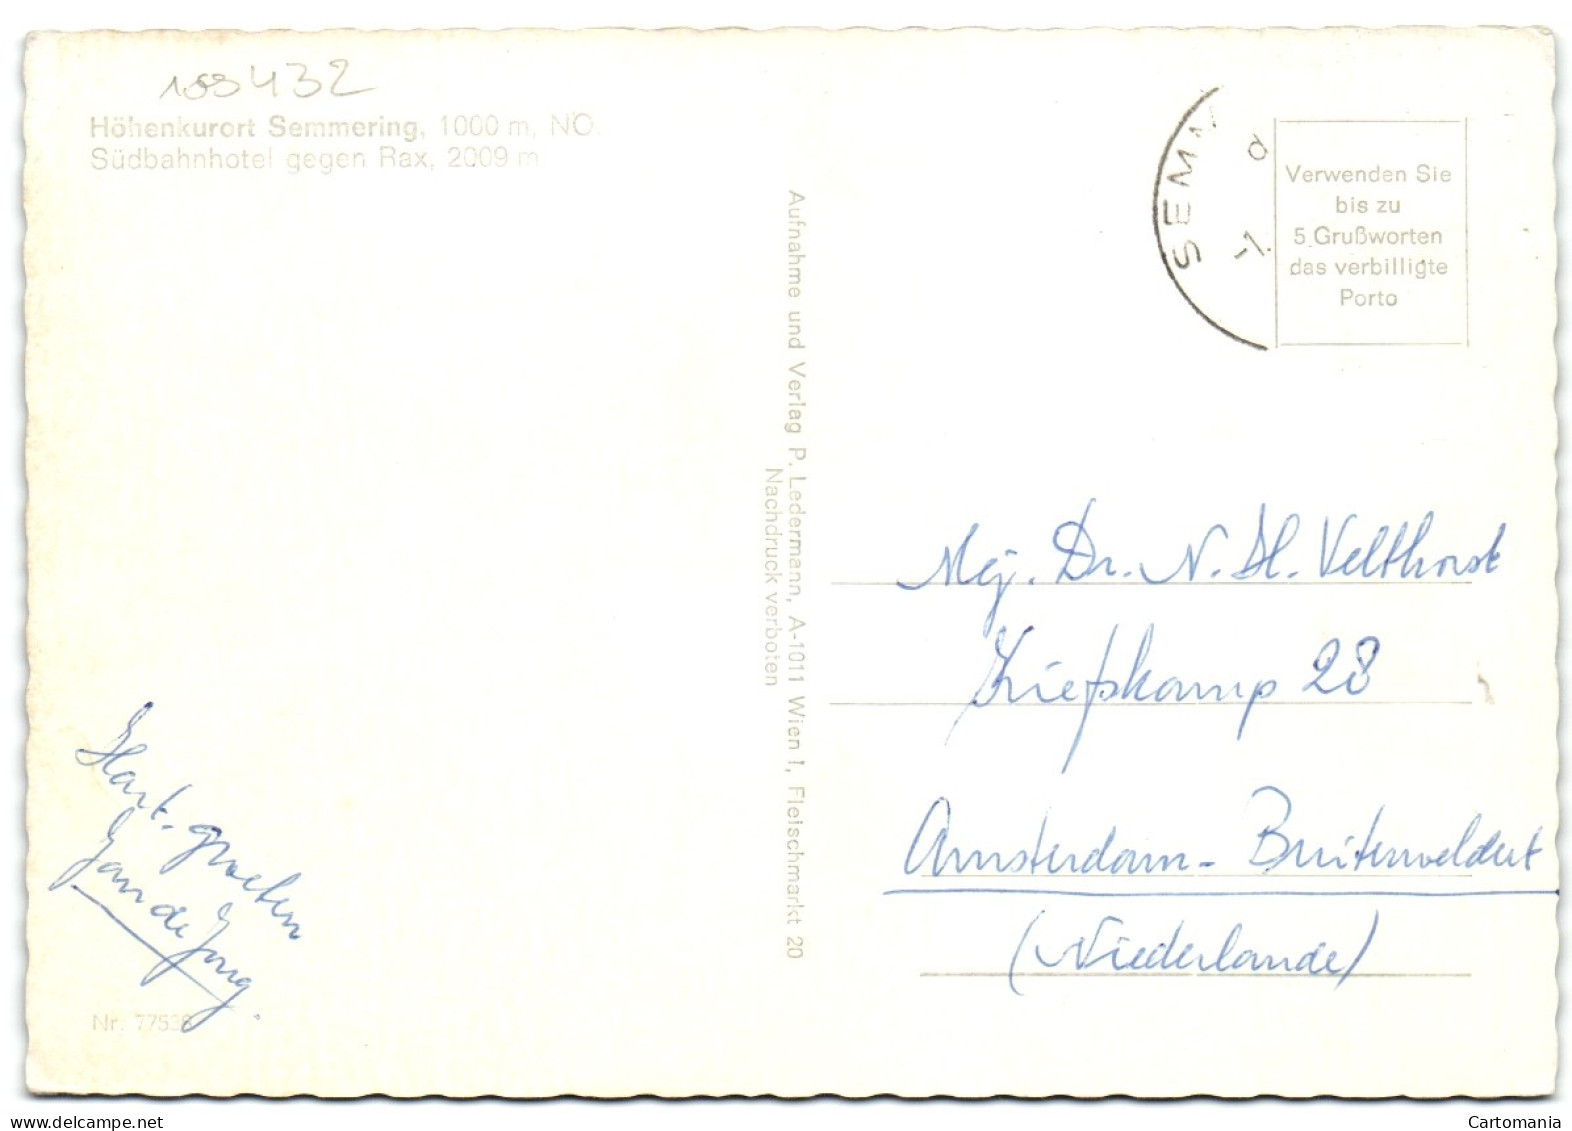 159432
Höhenkurort Semmering, 1000 m, NÖ.
Südbahnhotel gegen Rax, 2009 m
Hart. groeten
Jan de Jong.
Nr. 77538
Aufnahme und Verlag P. Ledermann, A-1011 Wien I, Fleischmarkt 20
Nachdruck verboten
SEMM
Verwenden Sie
bis zu
5 Grußworten
das verbilligte
Porto
Mej. Dr. N. H. Velthorst
Kiefskamp 28
Amsterdam - Buitenveldert
(Niederlande)
www.delcampe.net
Cartomania